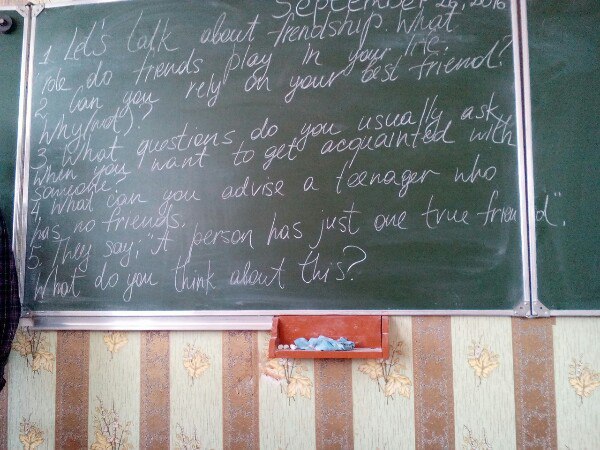 September 26, 2016
1. Let's talk about frendship. What
role do friends play in your life?
2. Can you rely on your best friend?
Why(not)?
3. What questions do you usually ask,
when you want to get acquainted with
someone?
4. What can you advise a teenager who
has no friends.
5. They say: "A person has just one true friend".
What do you think about this?